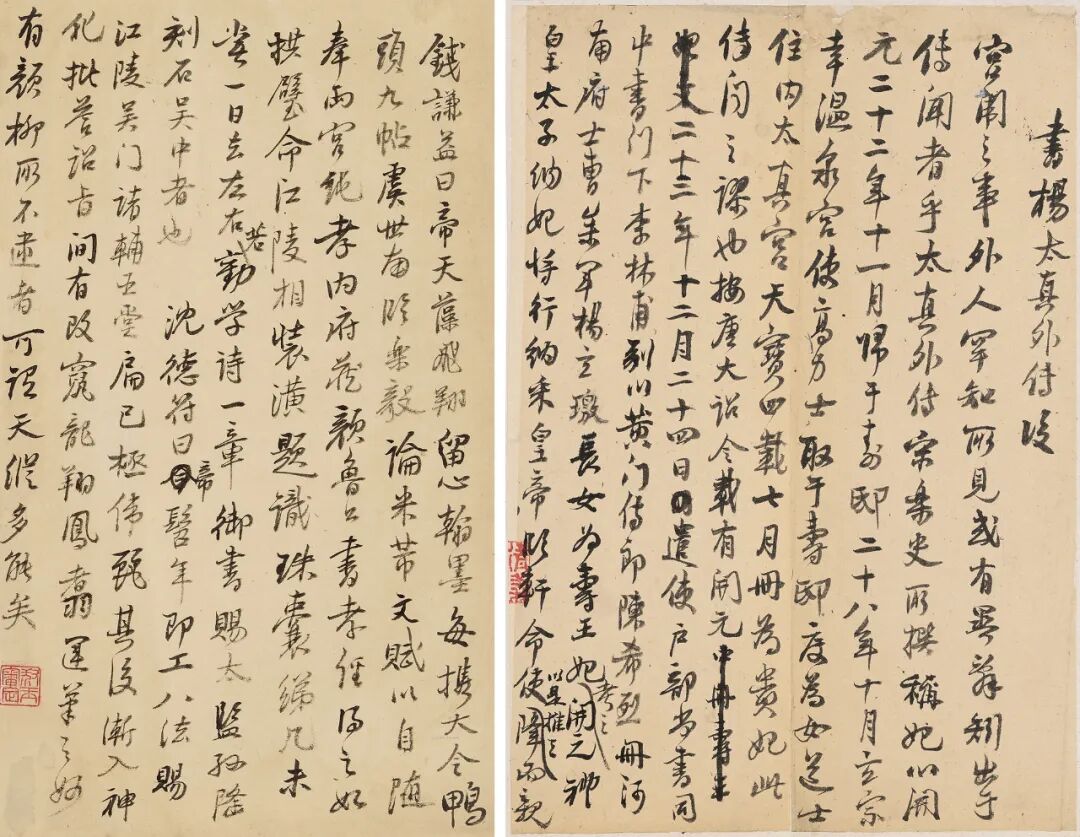 書楊太真外傳後
宮闈之事外人罕知所見或有異辭矧出于
傳聞者乎太真外傳宋樂史所撰稱妃以開
元二十二年十一月歸于壽邸二十八年十月玄宗
幸溫泉宮使高力士取于壽邸度為女道士
住內太真宮天寶四載七月冊為貴妃此
傳聞之謬也按唐大詔令載有開元中冊壽王
妃文二十三年十二月二十四日遣使戶部尚書同
中書門下李林甫副以黃門侍郎陳希烈冊河
南府士曹參軍楊玄璬長女為壽王妃考之開元禮
皇太子納妃將行納采皇帝臨軒命使降而親
以是推之
錢謙益曰帝天藻飛翔留心翰墨每攜大令鴨
頭丸帖虞世南臨樂毅論米芾文賦以自隨
奉兩宮純孝內府藏顏魯公書孝經得之如
拱璧命江陵相裝潢題識珠囊綈几未
嘗一日去左右若勸學詩一章御書賜太監孫隆
刻石吳中者也 沈德符曰帝髫年即工八法賜
江陵吳門諸輔五雲扁已極偉麗其後漸入神
化批答詔旨間有改竄龍翔鳳翥運筆之妙
有顏柳所不逮者可謂天縱多能矣